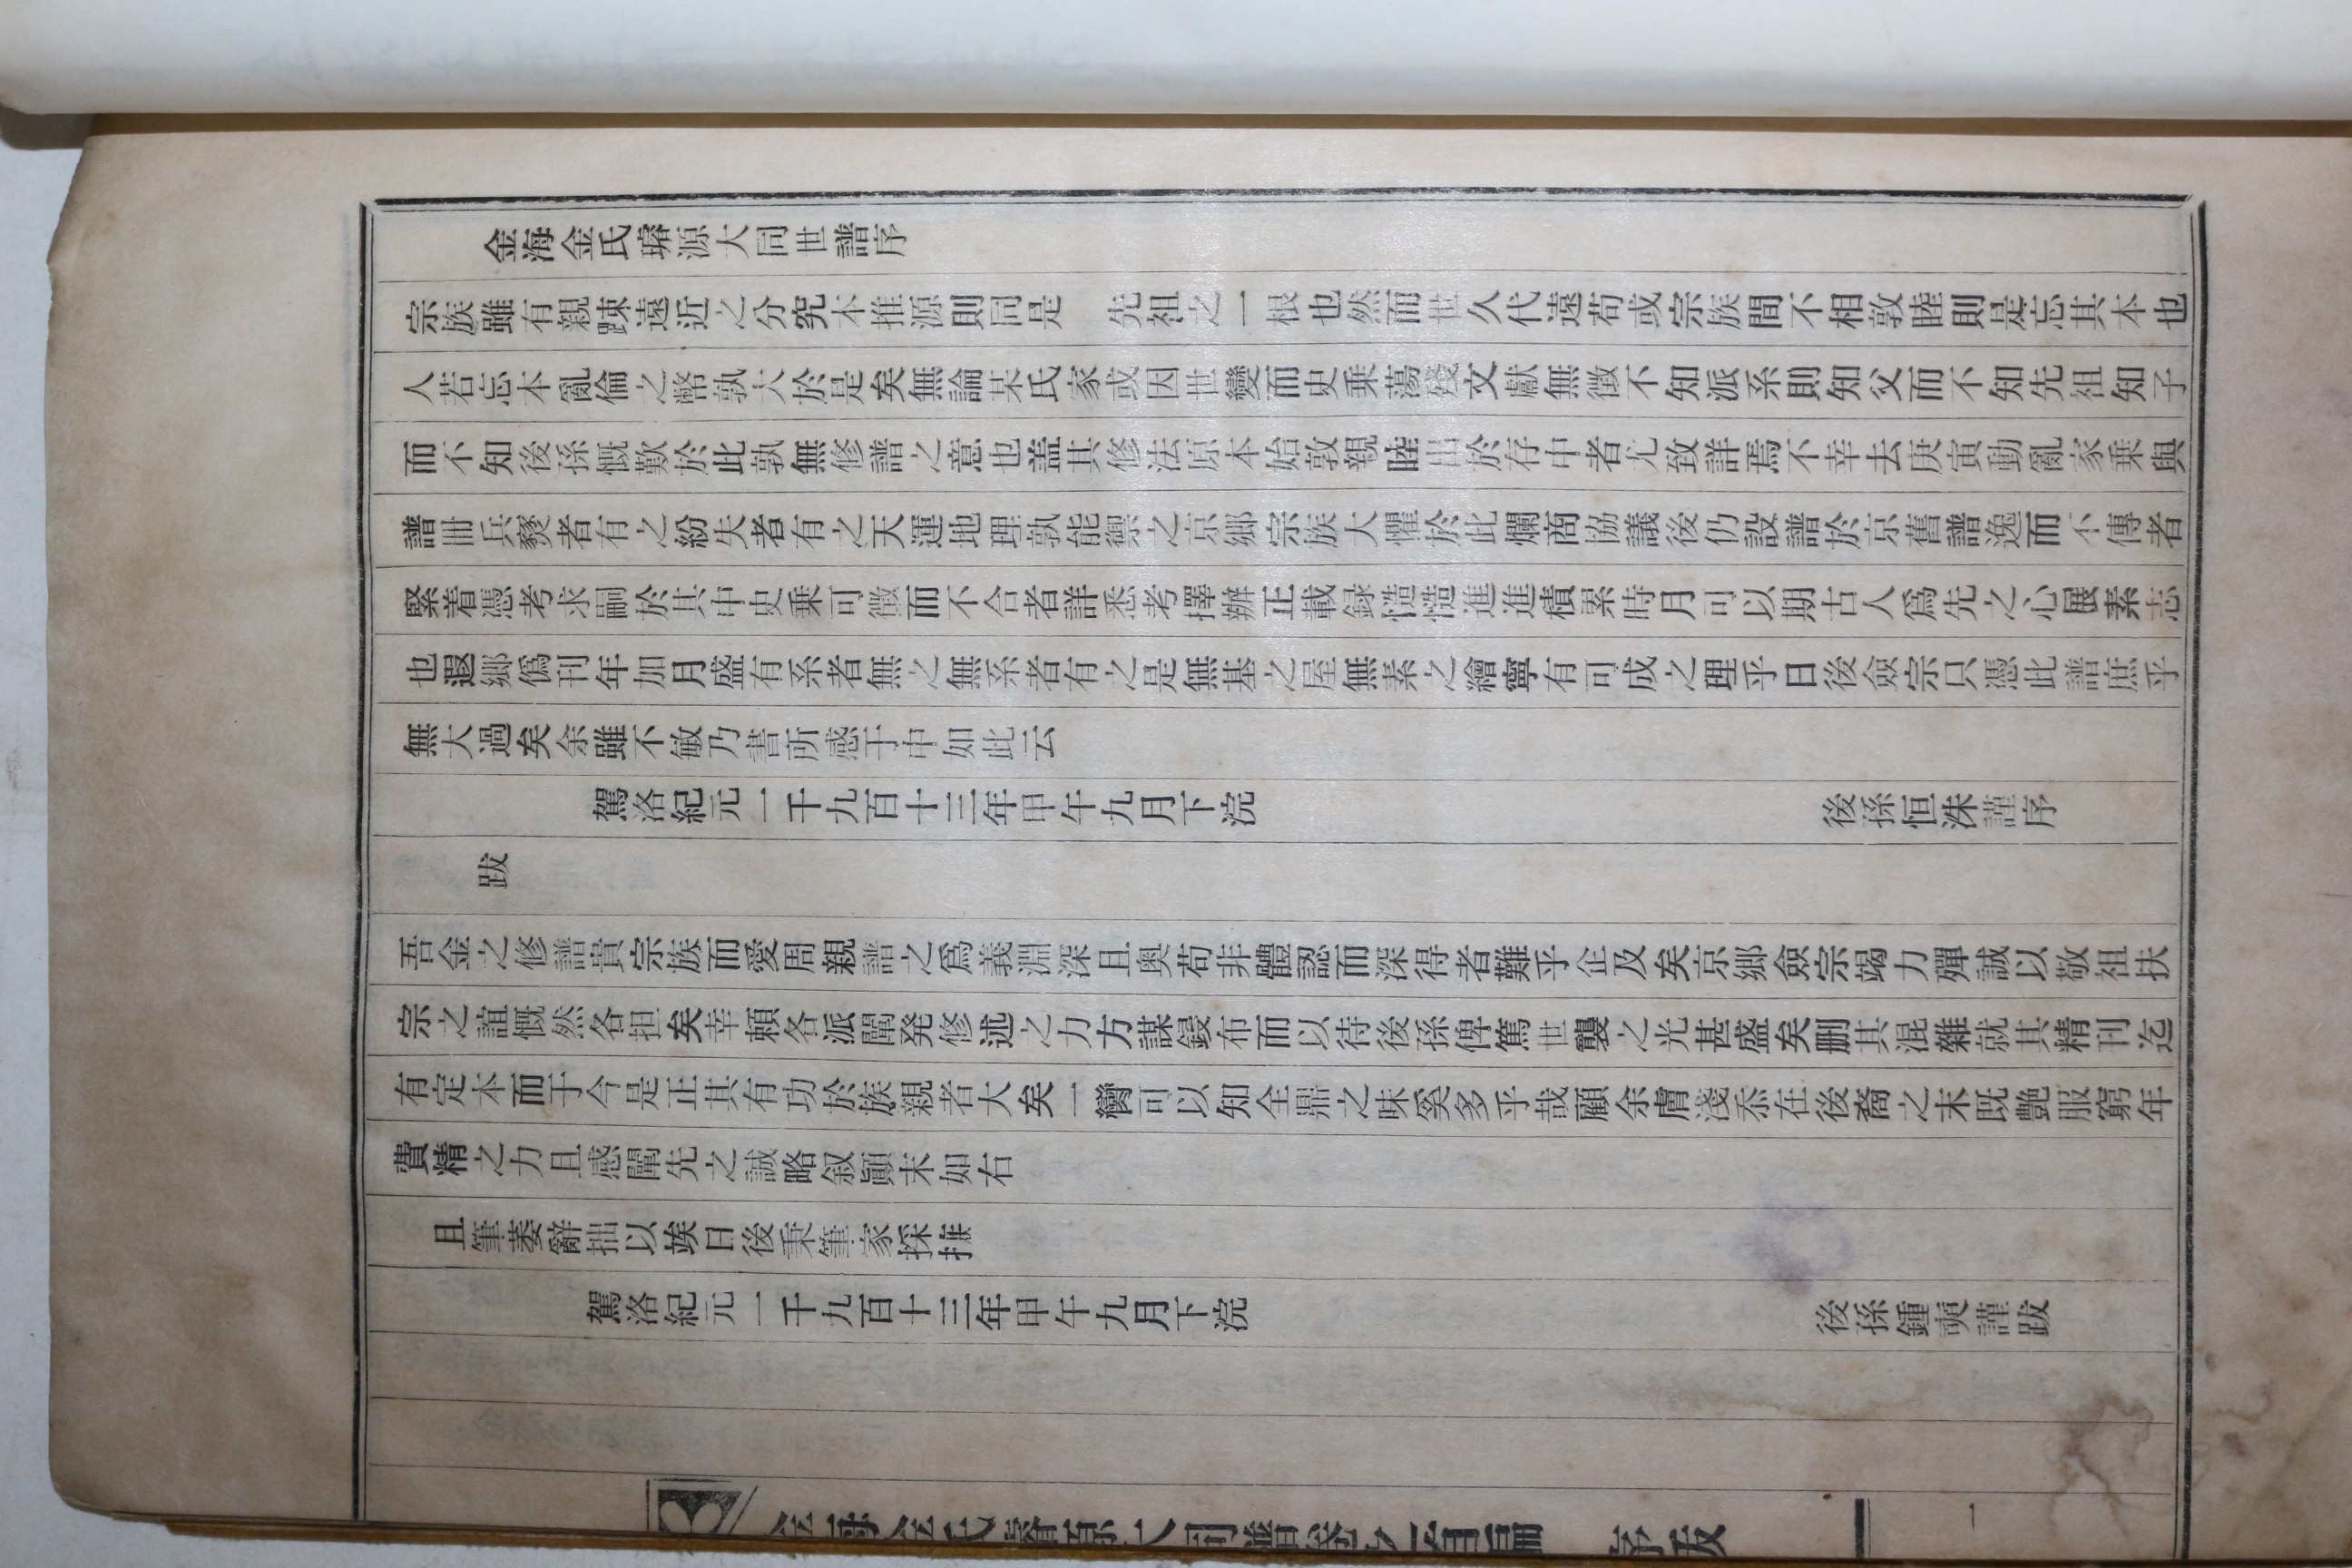 金海金氏璿源大同世譜序
宗族雖有親踈遠近之分究本推源則同是 先祖之一根也然而世久代遠苟或宗族間不相敦睦則是忘其本也
人若忘本亂倫之幣孰大於是矣無論某氏家或因世變而史乗蕩殘文獻無徵不知派系則知父而不知先祖知子
而不知後孫慨歎於此孰無修譜之意也盖其修法原本始敦親睦出於存中者尤致詳焉不幸去庚寅動亂家乗與
譜冊兵燹者有之紛失者有之天運地理孰能禦之京郷宗族大懼於此爛商協議後仍設譜於京舊譜逸而不傳者
緊着憑考求嗣於其中史乗可徵而不合者詳悉考擇辦正載録慥慥進進積累時月可以期古人爲先之心展素志
也遐郷僞刊年加月盛有系者無之無系者有之是無基之屋無素之繪寧有可成之理乎日後僉宗只憑此譜庶乎
無大過矣余雖不敏乃書所感于中如此云
駕洛紀元一千九百十三年甲午九月下浣 後孫恒洙謹序
跋
吾金之修譜貴宗族而愛周親譜之爲義淵深且奥苟非體認而深得者難乎企及矣京郷僉宗竭力殫誠以敬祖扶
宗之誼慨然各担矣幸頼各派闡発修述之力方謀鋟布而以待後孫俾篤世襲之光甚盛矣删其混雜就其精刊迄
有定本而于今是正其有功於族親者大矣一臠可以知全鼎之味奚多乎哉顧余膚淺忝在後裔之末既艶服窮年
費精之力且感闡先之誠略叙顚末如右
且筆萎辭拙以竢日後秉筆家採摭
駕洛紀元一千九百十三年甲午九月下浣 後孫鍾奭謹跋